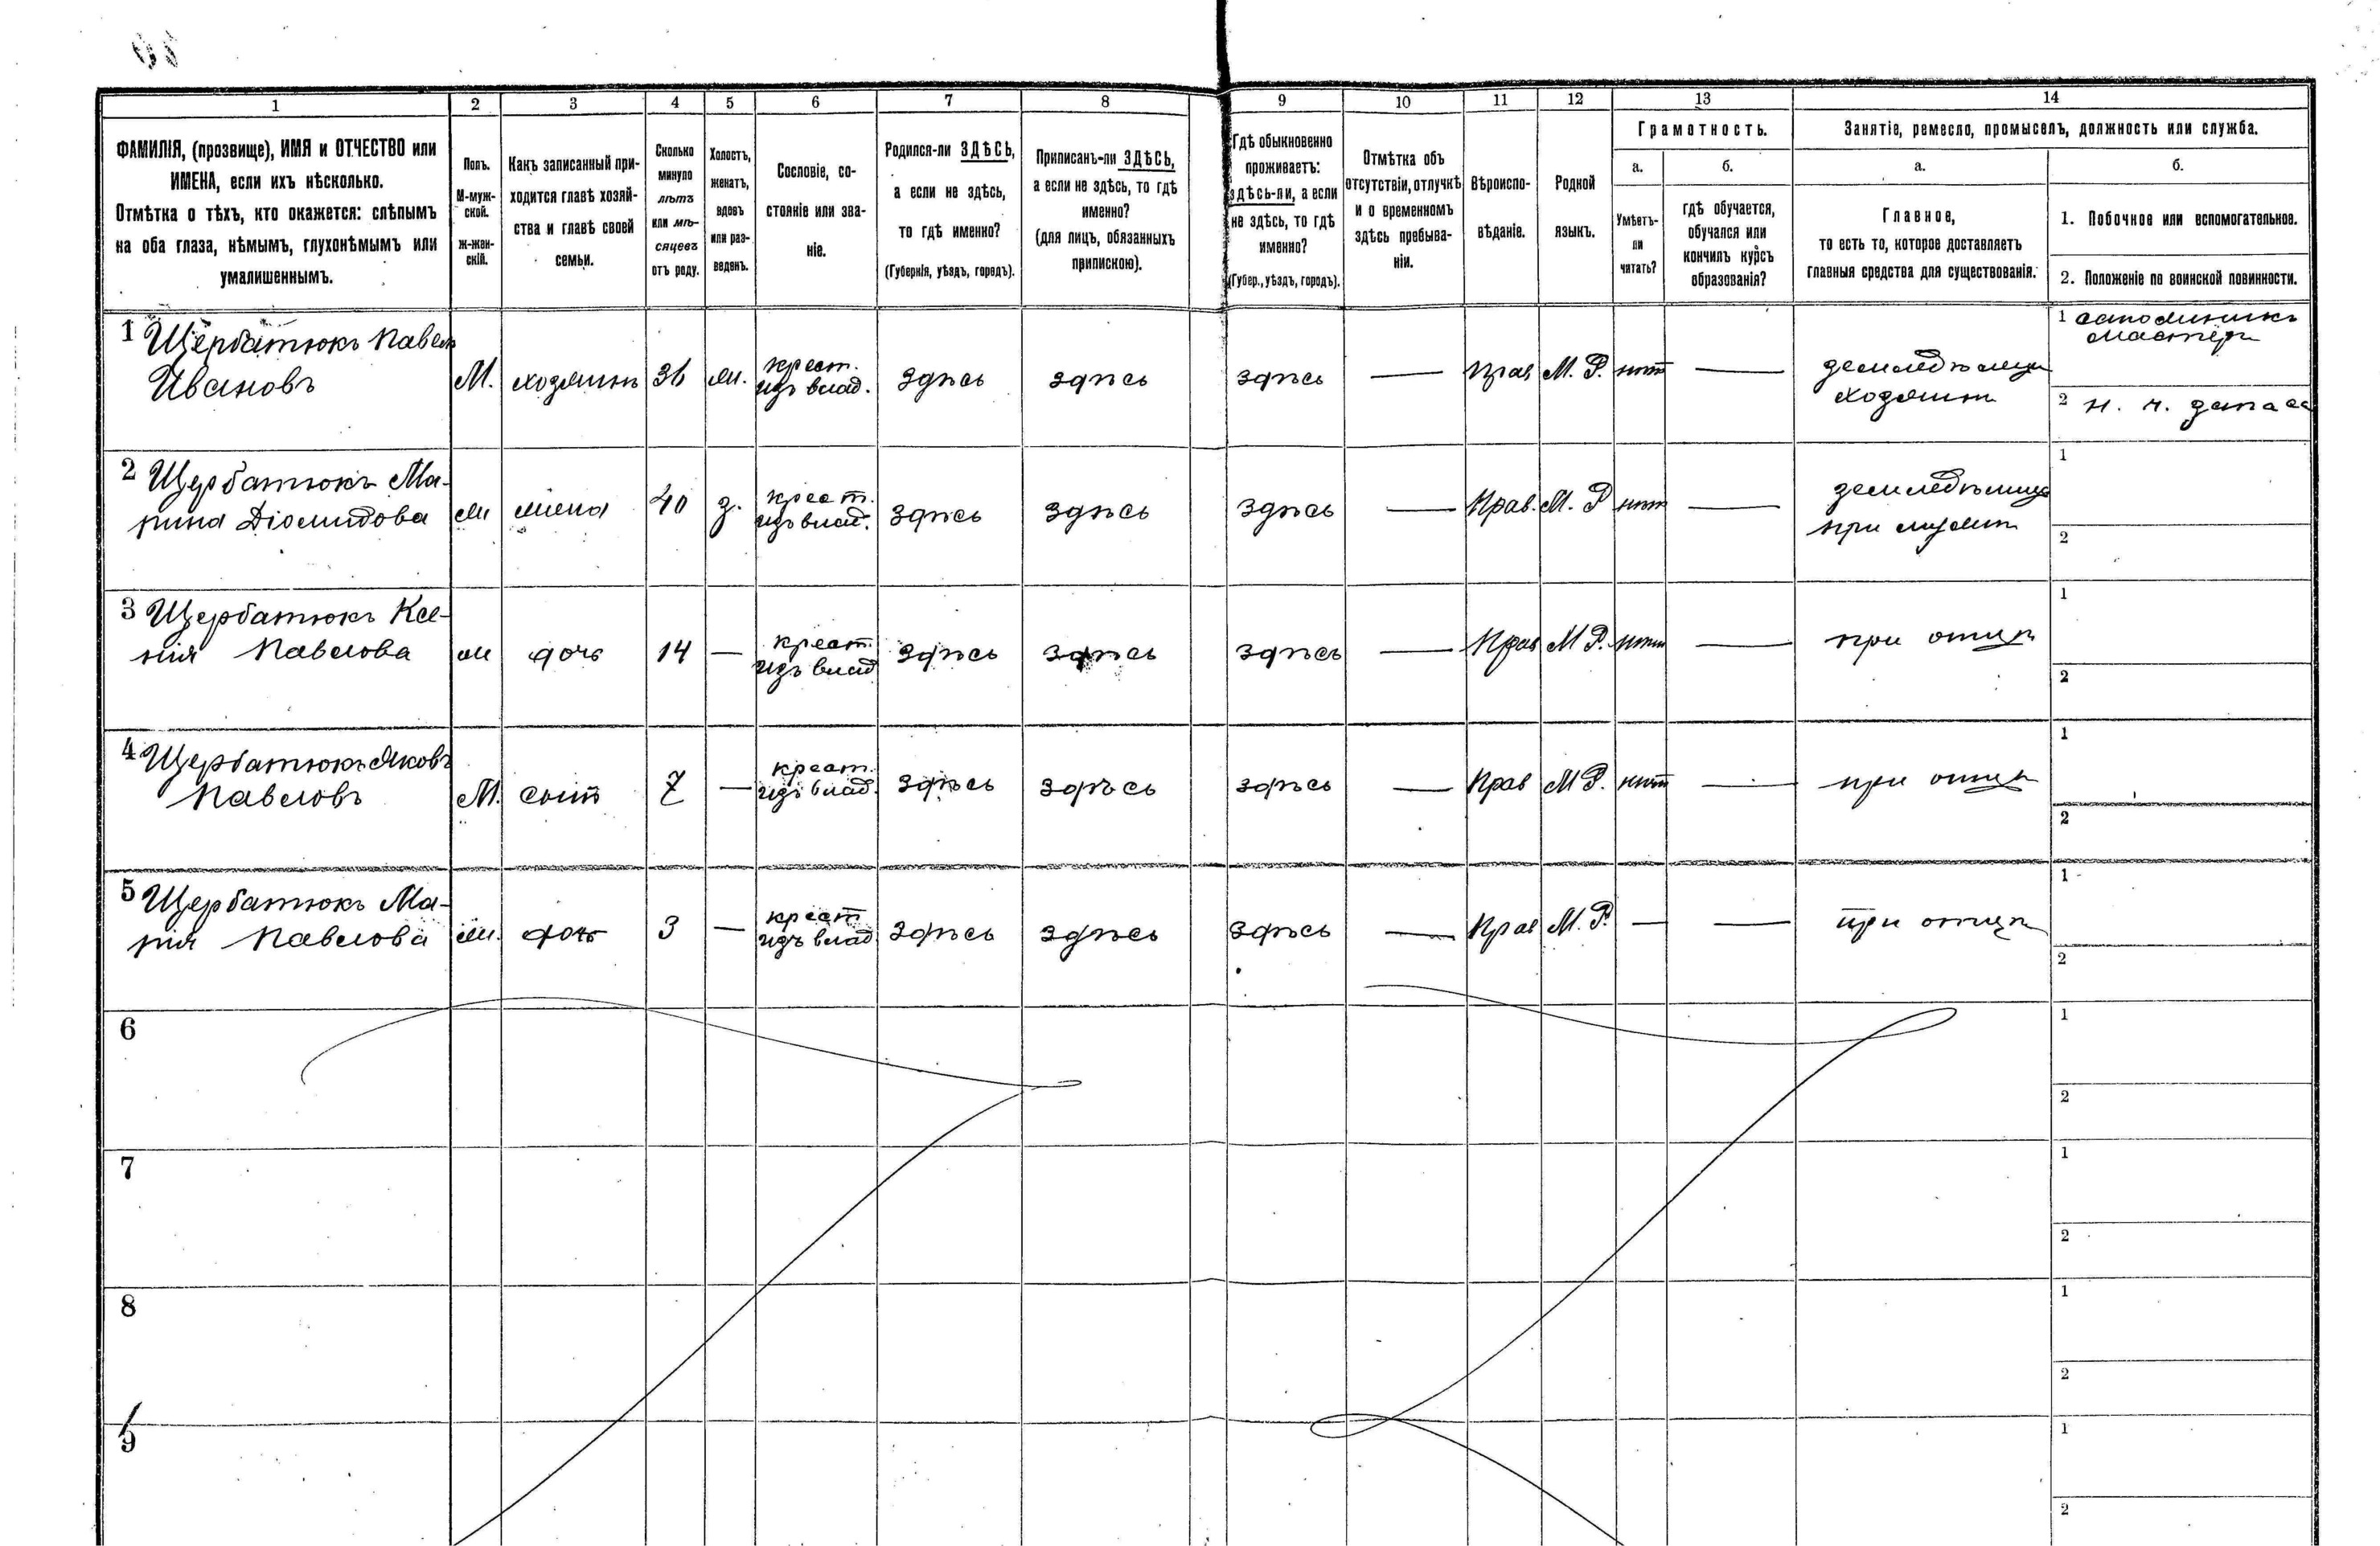 1 2 3 4 5 6 7 8 9 10 11 12 13 14
ФАМИЛІЯ, (прозвище), ИМЯ и ОТЧЕСТВО или
ИМЕНА, если ихъ нѣсколько.
Отмѣтка о тѣхъ, кто окажется: слѣпымъ
на оба глаза, нѣмымъ, глухонѣмымъ или
умалишеннымъ.
Полъ.
М-муж-
ской.
Ж-жен-
скій.
Какъ записанный при-
ходится главѣ хозяй-
ства и главѣ своей
семьи.
Сколько
минуло
лѣтъ
или мѣ-
сяцевъ
отъ роду.
Холостъ,
женатъ,
вдовъ
или раз-
веденъ.
Сословіе, со-
стояніе или зва-
ніе.
Родился-ли ЗДѢСЬ,
а если не здѣсь,
то гдѣ именно?
(Губернія, уѣздъ, городъ).
Приписанъ-ли ЗДѢСЬ,
а если не здѣсь, то гдѣ
именно?
(для лицъ, обязанныхъ
припискою).
Гдѣ обыкновенно
проживаетъ:
здѣсь-ли, а если
не здѣсь, то гдѣ
именно?
(Губер., уѣздъ, городъ).
Отмѣтка объ
отсутствіи, отлучкѣ
и о временномъ
здѣсь пребыва-
ніи.
Вѣроиспо-
вѣданіе.
Родной
языкъ.
Грамотность.
а.
Умѣетъ-
ли
читать?
б.
гдѣ обучается,
обучался или
кончилъ курсъ
образованія?
Занятіе, ремесло, промыселъ, должность или служба.
а.
Главное,
то есть то, которое доставляетъ
главныя средства для существованія.
б.
1. Побочное или вспомогательное.
2. Положеніе по воинской повинности.
1 Щербатюкъ Павелъ
Ивановъ
М. хозяинъ 36 ж. крест.
изъ влад.
здѣсь здѣсь здѣсь — Прав М. Р. нѣтъ — земледѣлецъ
хозяинъ
1 сапожникъ
мастеръ
2 н. ч. запаса
2 Щербатюкъ Ма-
рина Діомидова
ж жена 40 з. крест.
изъ влад.
здѣсь здѣсь здѣсь — Прав. М. Р нѣтъ — земледѣлица
при мужѣ
1
2
3 Щербатюкъ Ксе-
нія Павлова
ж дочь 14 — крест.
изъ влад
здѣсь здѣсь здѣсь — Прав М Р. нѣтъ — при отцѣ
1
2
4 Щербатюкъ Яковъ
Павловъ
М. сынъ 7 — крест.
изъ влад.
здѣсь здѣсь здѣсь — Прав М Р. нѣтъ — при отцѣ
1
2
5 Щербатюкъ Ма-
рія Павлова
ж. дочь 3 — крест
изъ влад
здѣсь здѣсь здѣсь — Прав М. Р. — — при отцѣ
1
2
6
1
2
7
1
2
8
1
2
9
1
2